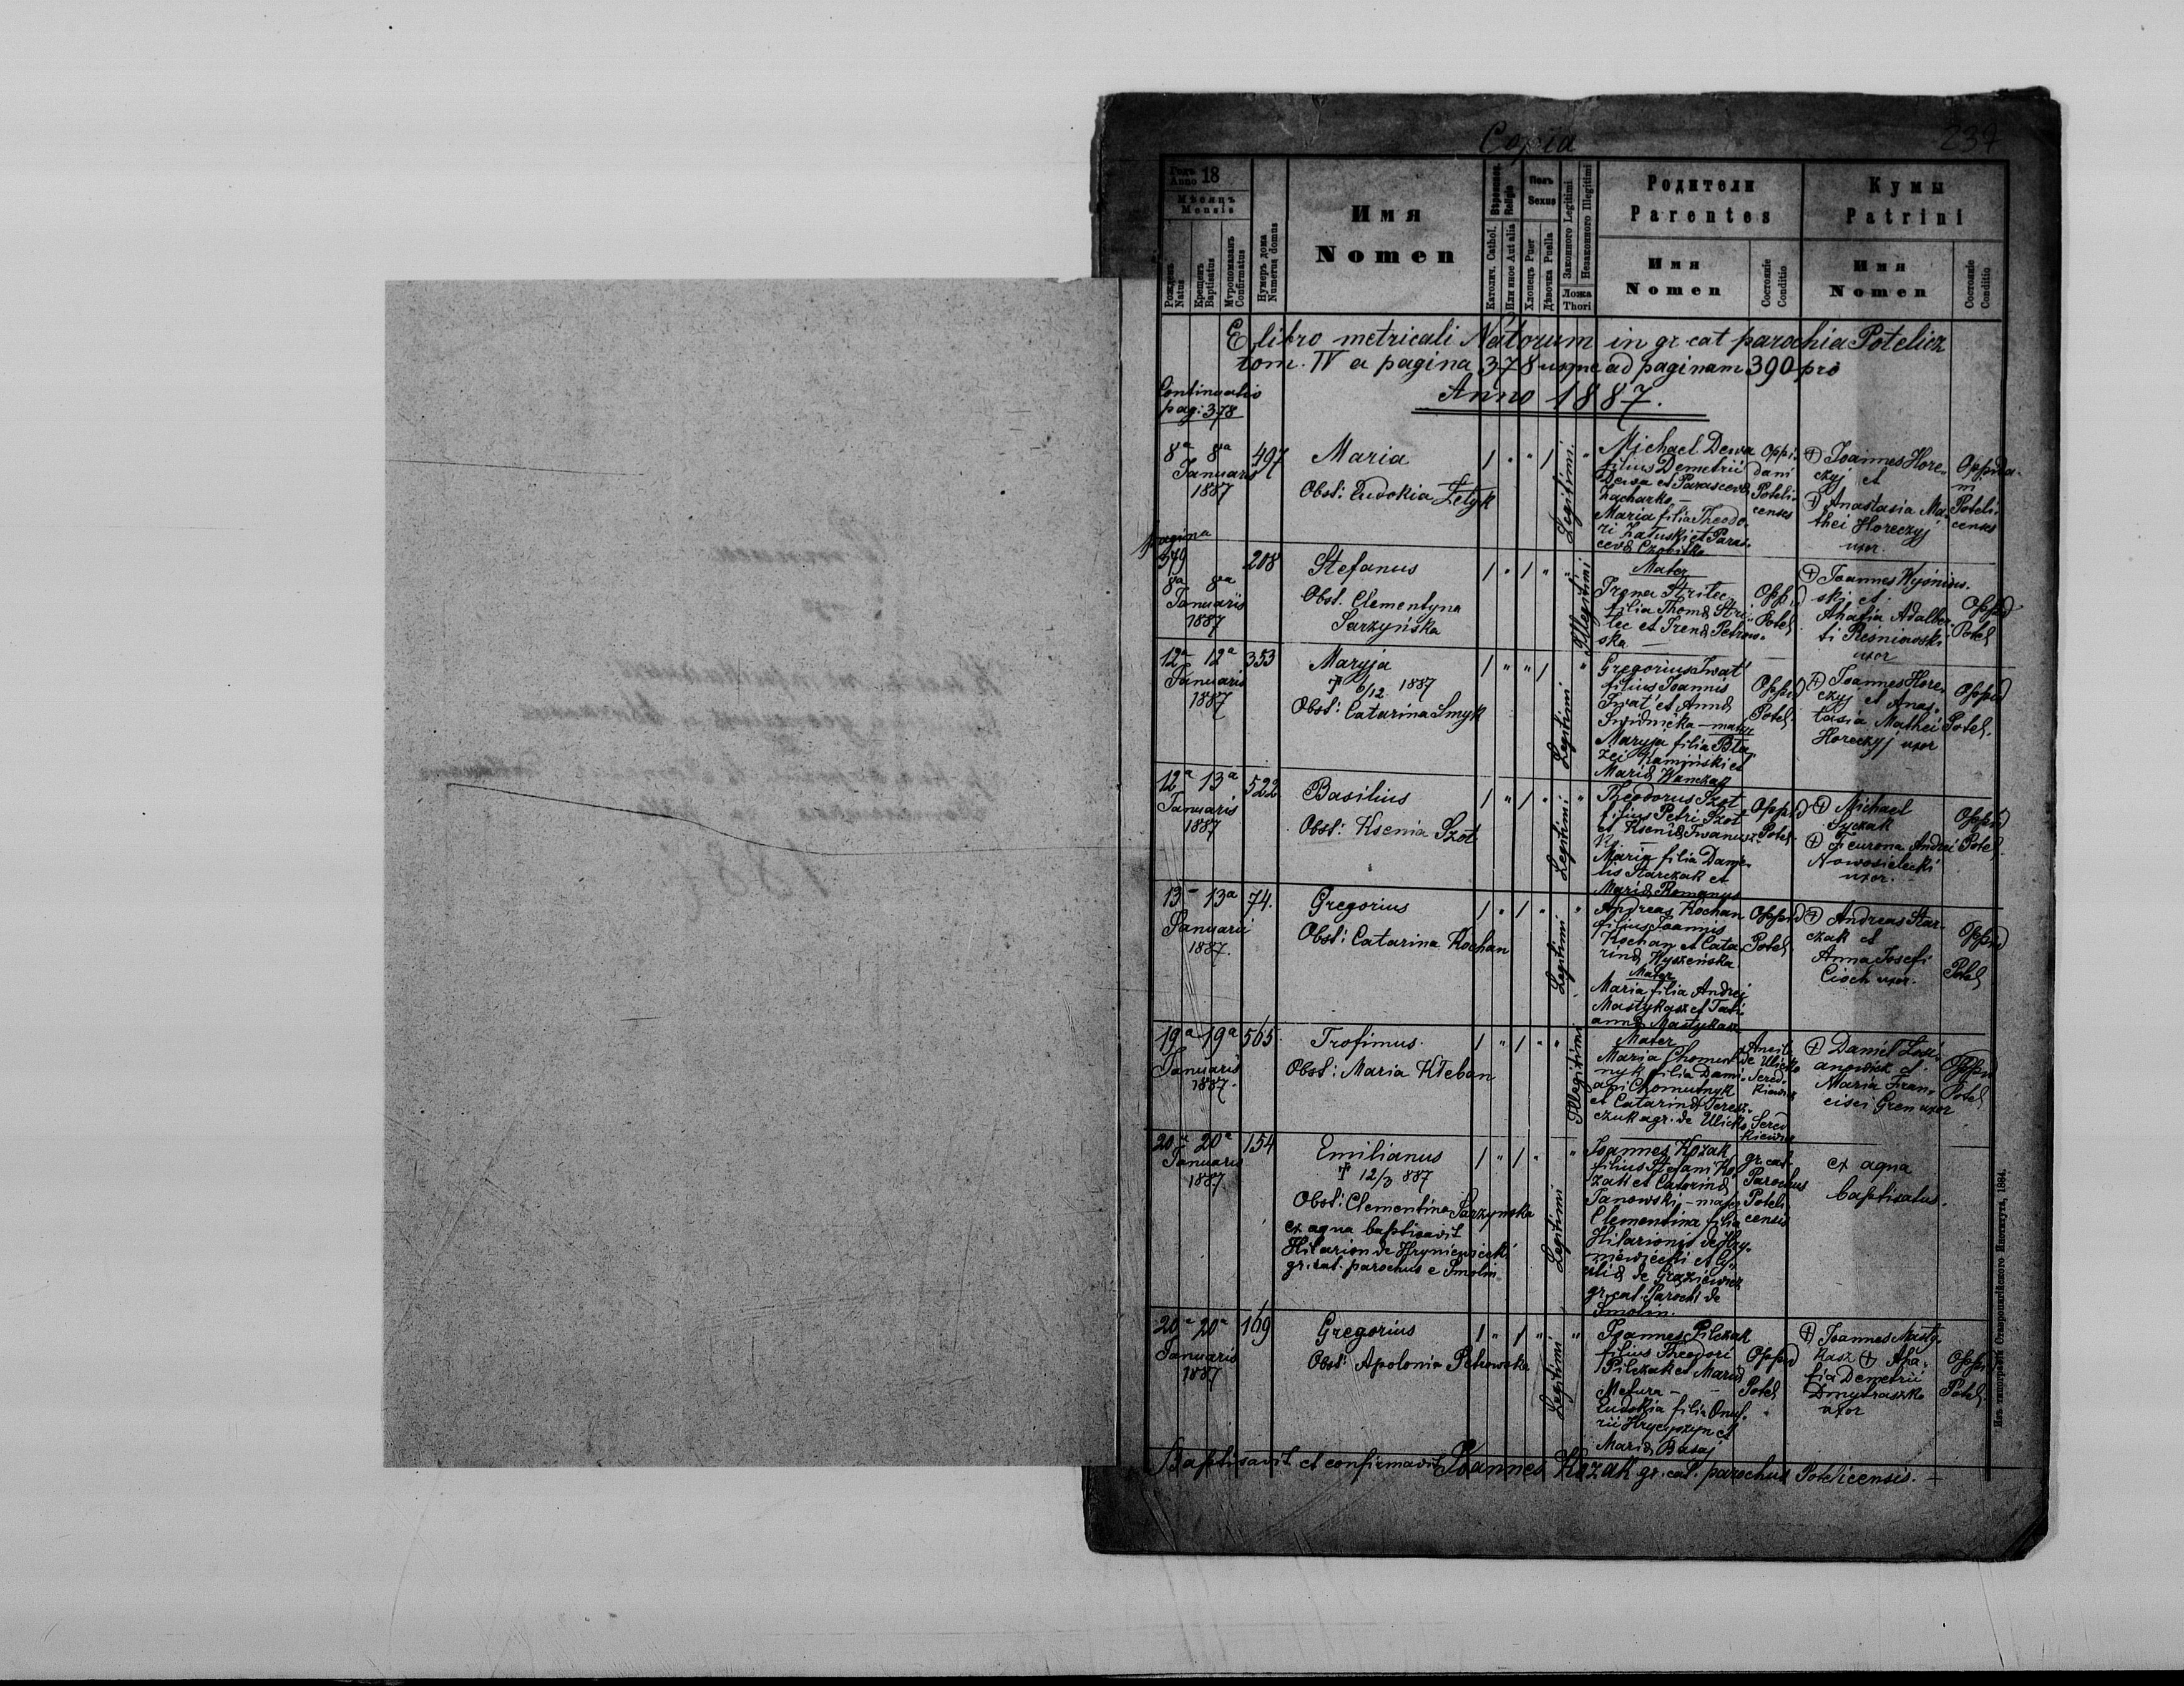 Copia
237
Годъ Anno 18
Мѣсяцъ
Mensis
Рожденъ Natus
Крещенъ Baptisatus
Муропомазанъ Confirmatus
Нумеръ дома Numerus domus
Имя
Nomen
Религія Religio
Католич. Cathol.
Или иное Aut alia
Полъ
Sexus
Хлопецъ Puer
Дѣвочка Puella
Законного Legitimi
Незаконного Illegitimi
Ложа
Thori
Родители
Parentes
Имя
Nomen
Состояніе
Conditio
Кумы
Patrini
Имя
Nomen
Состояніе
Conditio
E libro metricali Natorum in gr. cat parochia Potelicz
tom. IV a pagina 378 usque ad paginam 390 pro
Anno 1887.
Continuatio
pag: 378
8a 8a
Januaris
1887
497
Maria
Obst: Eudokia Zetyk
Legitimi
Michael Dewa
filius Demetrii
Dewa et Parascevæ
Zacharko —
Maria filia Theodo-
ri Załuski et Paras-
cevæ Czobitko
Oppi-
dani
Poteli-
censes
Joannes Hore-
czyj et
Anastasia Ma-
thei Horeczyj
uxor.
Oppida-
ni
Poteli-
censes
pagina
379
8a 8a
Januaris
1887
208
Stefanus
Obst. Clementyna
Sarzyńska
Illegitimi
Mater
Irena Stritec
filia Thomæ Stri-
tec et Irenæ Petrow-
ska —
Oppid
Potel
Joannes Wyśniow-
ski et
Ahafia Adalber-
ti Reśniowski
uxor
Oppid
Potel
12a 12a
Januaris
1887
353
Maryja
† 6/12 1887
Obst: Catarina Smyk
Legitimi
Gregorius Iwat
filius Joannis
Iwat et Annæ
Swidnicka — mater
Maryja filia Bła-
żei Kamiński et
Mariæ Wanczak
Oppid
Potel.
Joannes Hore-
czyj et Anas-
tasia Mathei
Horeczyj uxor
Oppid
Potel.
12a 13a
Januaris
1887
522
Basilius
Obst: Ksenia Szot
Legitimi
Theodorus Szot
filius Petri Szot
et Kseniæ Iwanusz-
ki —
Maria filia Dani-
lis Starczak et
Mariæ Romanus
Oppid
Potel.
Michael
Syczak
Fieurona Andrei
Nowosielecki
uxor.
Oppid
Potel.
13 - 13a
Januarii
1887.
74.
Gregorius
Obst: Catarina Kochan
Legitimi
Andreas Kochan
filius Joannis
Kochan et Cata-
rinæ Wyszeńska
Mater
Maria filia Andrei
Mastykasz et Tati-
annæ Mastykasz
Oppid
Potel.
Andreas Star-
czak et
Anna Josefi
Cioch uxor.
Oppid
Potel
19a 19a
Januaris
1887.
565
Trofimus.
Obst: Maria Kłeban
Illegitimi
Mater
Maria Chomut-
nyk filia Dami-
ani Chomutnyk
et Catarinæ Teresz-
czuk agr. de Ulicko Sered
kiewicz
Ancilla
de Ulicko
Sered-
kiewicz
Daniel Losi-
anowicz et
Maria Fran-
cisci Gren uxor
Oppid
Potel
20a 20a
Januaris
1887
154
Emilianus
† 12/3 887
Obst: Clementina Sarzynska
ex aqua baptisavit
Hilarion de Hryniewiecki
gr. cat. parochus e Smolin
Legitimi
Joannes Kozak
filius Stefani Ko-
zak et Catarinæ
Janowski, — mater
Clementina filia
Hilarionis de Hry-
niewiecki et
de Graziewicz
gr. cat. Parochi de
Smolin.
gr. cat.
Parochus
Poteli-
censis
ex aqua
baptisatus.
20a 20a
Januaris
1887
169
Gregorius
Obst: Apolonia Petrowska
Legitimi
Joannes Pilczak
filius Theodori
Pilczak et Mariæ
Matura —
Eudokia filia Onuf-
rii Hrycyszyn et
Mariæ Basaj
Oppid
Potel
Joannes Masty-
kasz Aha-
fia Demetrii
Dmytraszko
uxor
Oppid
Potel.
Baptisavit et confirmavit Joannes Kozak gr. cat. parochus Potelicensis.
Изъ типографіи Ставропигійского Института, 1884.